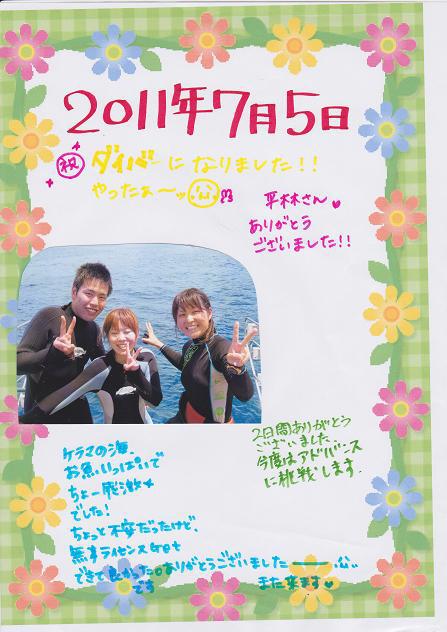 2011年7月5日
祝 ダイバーになりました!!
やったぁ〜ッ
平林さん
ありがとう
ございました!!
2日間ありがとう
ございました
今度はアドバンス
に挑戦します。
ケラマの海、
お魚いっぱいで
ちょー感激
でした!
ちょっと不安だったけど、
無事ライセンスGet
できて良かったです。ありがとうございましたーー
また来ます